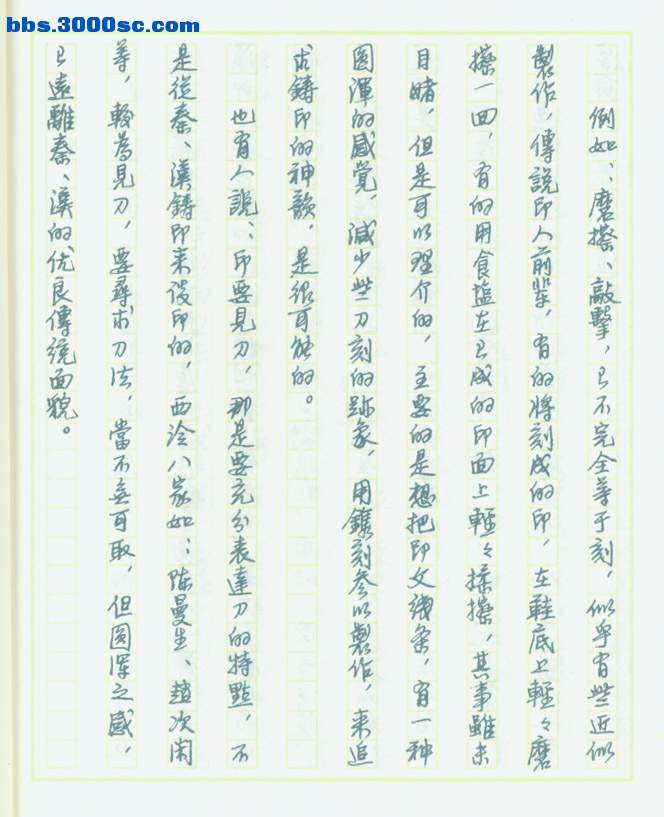 bbs.3000sc.com
例如：磨擦、敲擊，已不完全等于刻，似乎有些近似
製作，傳說印人前輩，有的将刻成的印，在鞋底上輕々磨
擦一回，有的用食塩在已成的印面上輕々揉擦，其事雖未
目睹，但是可以理介的，主要的是想把印文线条，有一种
圆渾的感覚，減少些刀刻的跡象，用鐫刻参以製作，来追
求鋳印的神韻，是很可能的。
也有人說：印要見刀，那是要充分表達刀的特點，不
是從秦、漢鋳印来设印的，西泠八家如：陈曼生、趙次閑
等，較為見刀，要尋求刀法，當不無可取，但圆渾之感，
已遠離秦、漢的优良傳統面貌。